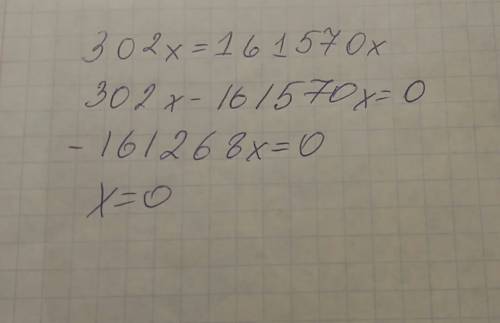 302x=161570x
302x-161570x=0
-161268x=0
x=0